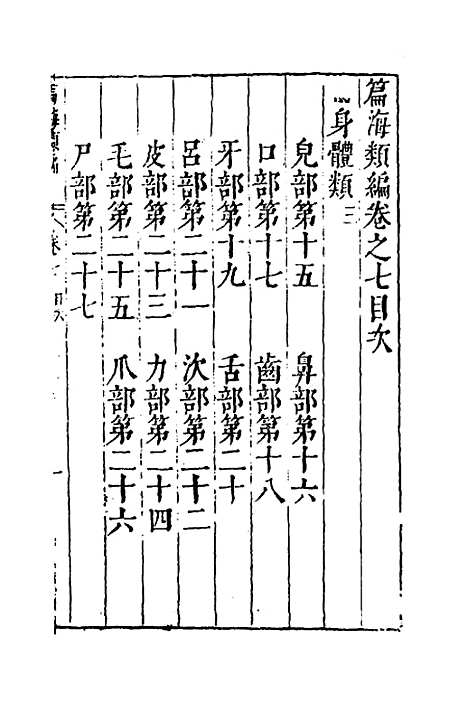 篇海類編卷之七目次
身體類三
皃部第十五 鼻部第十六
口部第十七 齒部第十八
牙部第十九 舌部第二十
呂部第二十一 次部第二十二
皮部第二十三 力部第二十四
毛部第二十五 爪部第二十六
尸部第二十七